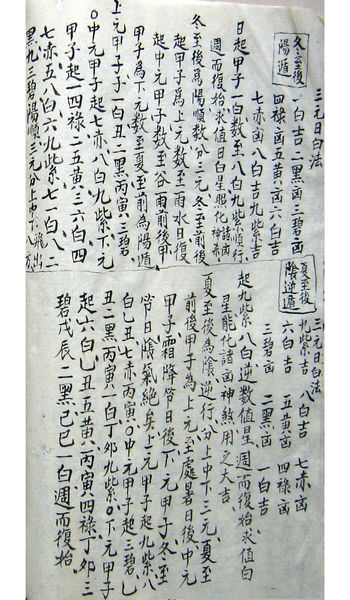 三元日白法
冬至後
陽遁
一白吉 二黑凶 三碧凶
四祿凶 五黃凶 六白吉
七赤凶 八白吉 九紫吉
日起一白數至八白九紫順行
週而復始求值白星能化諸凶神煞
冬至後為陽順數分三元冬至前後
起甲子為上元數至雨水日後
起中元甲子數至谷雨前後甲
甲子為下元数至夏至前為陽遁
上元甲子子一白丑二黑丙寅三碧
〇中元甲子起七赤八白九紫下元
甲子起一四祿二五黃三六白四
七赤五八白六九紫七一白八二
黑九三碧陽順三元分上中下飛出
三元日白法
夏至後
陰逆遁
九紫吉 八白吉 七赤凶
六白吉 五黃凶 四祿凶
三碧凶 二黑凶 一白吉
起九紫八白逆數值星週而復始求值白
星能化諸凶神煞用之大吉
夏至後為陰逆行分上中下三元夏至
前後甲子為上元至處暑日後中元
甲子霜降節日後下元甲子冬至
節日陰氣絕矣上元甲子起九紫八
白乙丑七赤丙寅〇中元甲子起三碧乙
丑二黑丙寅一白丁夘九紫〇下元甲子
起六白乙丑五黃丙寅四祿丁夘三
碧戊辰二黑己巳一白週而復始